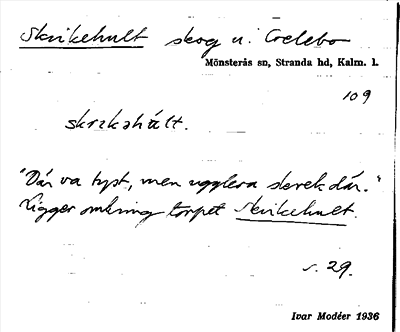 Skrikehult skog u. Coelebo
Mönsterås sn, Stranda hd, Kalm. l.
109
skrikəhúlt.
"Där va tyst, men ugglera skrek där."
Ligger omkring torpet Skrikehult.
s. 29.
Ivar Modéer 1936